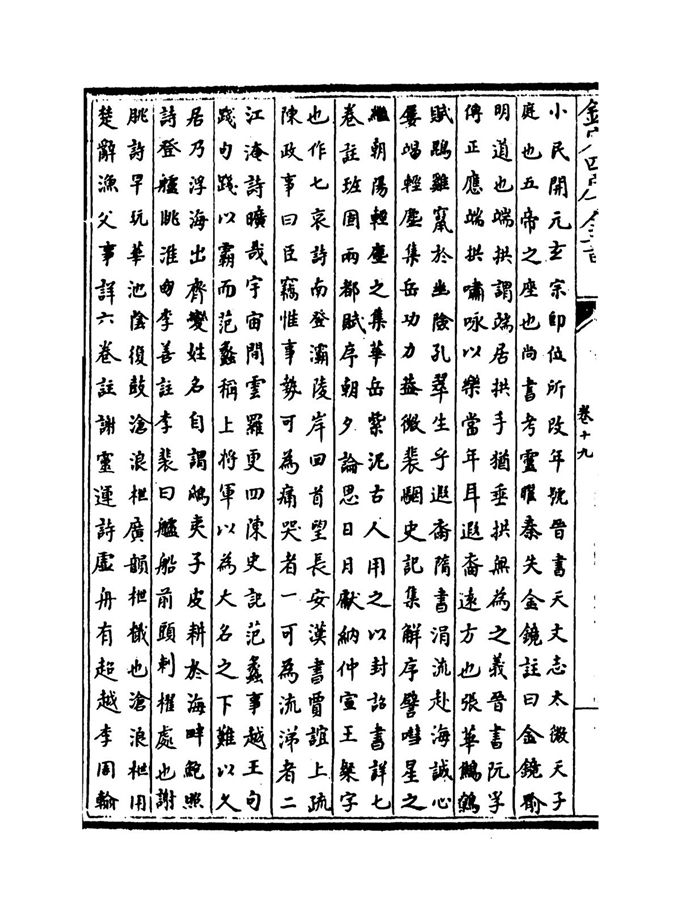 欽定四庫全書
卷十九
小民開元玄宗即位所改年號晉書天文志太微天子
庭也五帝之座也尚書考靈曜秦失金鏡註曰金鏡喻
明道也端拱謂端居拱手猶垂拱無為之義晉書阮孚
傳正應端拱嘯咏以樂當年耳遐裔遠方也張華鷦鷯
賦鵾雞竄於幽險孔翠生乎遐裔隋書涓流赴海誠心
屢竭輕塵集岳功力蓋微裴駰史記集解序譬嘒星之
繼朝陽輕塵之集華岳紫泥古人用之以封詔書詳七
卷註班固兩都賦序朝夕論思日月獻納仲宣王粲字
也作七哀詩南登灞陵岸回首望長安漢書賈誼上疏
陳政事曰臣竊惟事勢可為痛哭者一可為流涕者二
江淹詩曠哉宇宙間雲羅更四陳史記范蠡事越王句
踐句踐以霸而范蠡稱上將軍以為大名之下難以久
居乃浮海出齊變姓名自謂鴟夷子皮耕於海畔鮑照
詩登艫眺淮甸李善註李裴曰艫船前頭刺櫂處也謝
朓詩早玩華池陰復鼓滄浪枻廣韻枻檝也滄浪枻用
楚辭漁父事詳六卷註謝靈運詩虛舟有超越李周翰